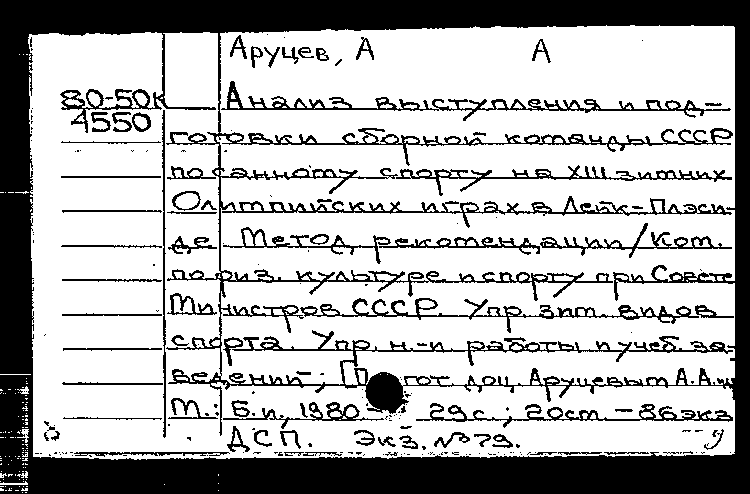 Аруцев, А А
80-50к Анализ выступления и под-
4550 готовки сборной команды СССР
по санному спорту на XIII зимних
Олимпийских играх в Лейк-Плэси-
де Метод, рекомендации/Ком.
по физ. культуре и спорту при Совете
Министров СССР. Упр. зим. видов
спорта. Упр. н.-и. работы и учеб. за-
ведений; гот доц. Аруцевым А.А.
М.: Б.и., 1980 - 29с.; 20см. - 86экз
ДСП. Экз. №79.